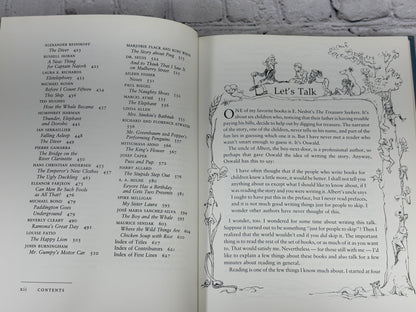 ALEXANDER RESNIKOFF
The Diver 453
RUSSELL HOBAN
A Near Thing
for Captain Najork 454
LAURA E. RICHARDS
Eletelephony 461
MICHAEL ROSEN
Before I Count Fifteen 462
This Ship 463
TED HUGHES
How the Whale Became 464
HUMPHREY HARMAN
Thunder, Elephant
and Dorobo 468
IAN SERRAILLIER
Falling Asleep 470
The Diver 471
PIERRE GAMARRA
The Bridge on the
River Clarinette 472
HANS CHRISTIAN ANDERSEN
The Emperor's New Clothes 476
The Ugly Duckling 480
ELEANOR FARJEON
Can Men Be Such Fools
as All That? 486
MICHAEL BOND
Paddington Goes
Underground 479
BEVERLY CLEARY
Ramona's Great Day
LOUISE FATIO
The Happy Lion
JOHN BURNINGHAM
Mr. Gumpy's Motor Car
xii CONTENTS
MARJORIE FLACK AND KURT WIESE
The Story about Ping
DR. SEUSS
And to Think That I Saw It
on Mulberry Street
EILEEN FISHER
Noses
PAUL BIEGEL
The Naughty Shoes
MARCEL AYMÉ
The Elephant
LINDA ALLEN
Mrs. Simkin's Bathtub
RICHARD AND FLORENCE ATWATER
Mr. Greenbaum and Popper's
Performing Penguins
MITSUMASA ANNO
The King's Flower
JOSEF ČAPEK
Puss and Pup
HARRY ALLARD
The Stupids Step Out
A. A. MILNE
Eeyore Has a Birthday
and Gets Two Presents
SPIKE MILLIGAN
My Sister Laura
JOSÉ MARIA SANCHEZ-SILVA
The Boy and the Whale
MAURICE SENDAK
Where the Wild Things Are
Chicken Soup with Rice
Index of Titles
Index of Contributors
Index of First Lines
Let's Talk
ONE of my favorite books is E. Nesbit's The Treasure Seekers. It's
about six children who, sensing that their father is having trouble
paying his bills, decide to help out by digging for treasure. The narrator
of the story, one of the children, never tells us his name, and part of the
fun lies in guessing which one it is. But I have never met a reader who
wasn't smart enough to guess it. It's Oswald.
The uncle of Albert, the boy next door, is a professional author, so
perhaps that gave Oswald the idea of writing the story. Anyway,
Oswald has this to say:
I have often thought that if the people who write books for
children knew a little more, it would be better. I shall not tell you
anything about us except what I should like to know about if I
was reading the story and you were writing it. Albert's uncle says
I ought to have put this in the preface, but I never read prefaces,
and it is not much good writing things just for people to skip. I
wonder other authors have never thought of this.
I wonder, too. I wondered for some time about writing this talk.
Suppose it turned out to be something "just for people to skip"? Then I
realized that the world wouldn't end if you did skip it. The important
thing is to read the rest of the set of books, or as much as it appeals to
you. That would satisfy me. Nevertheless – for those still with me – I'd
like to explain a few things about these books and also talk for a few
minutes about reading in general.
Reading is one of the things I know much about. I started at four